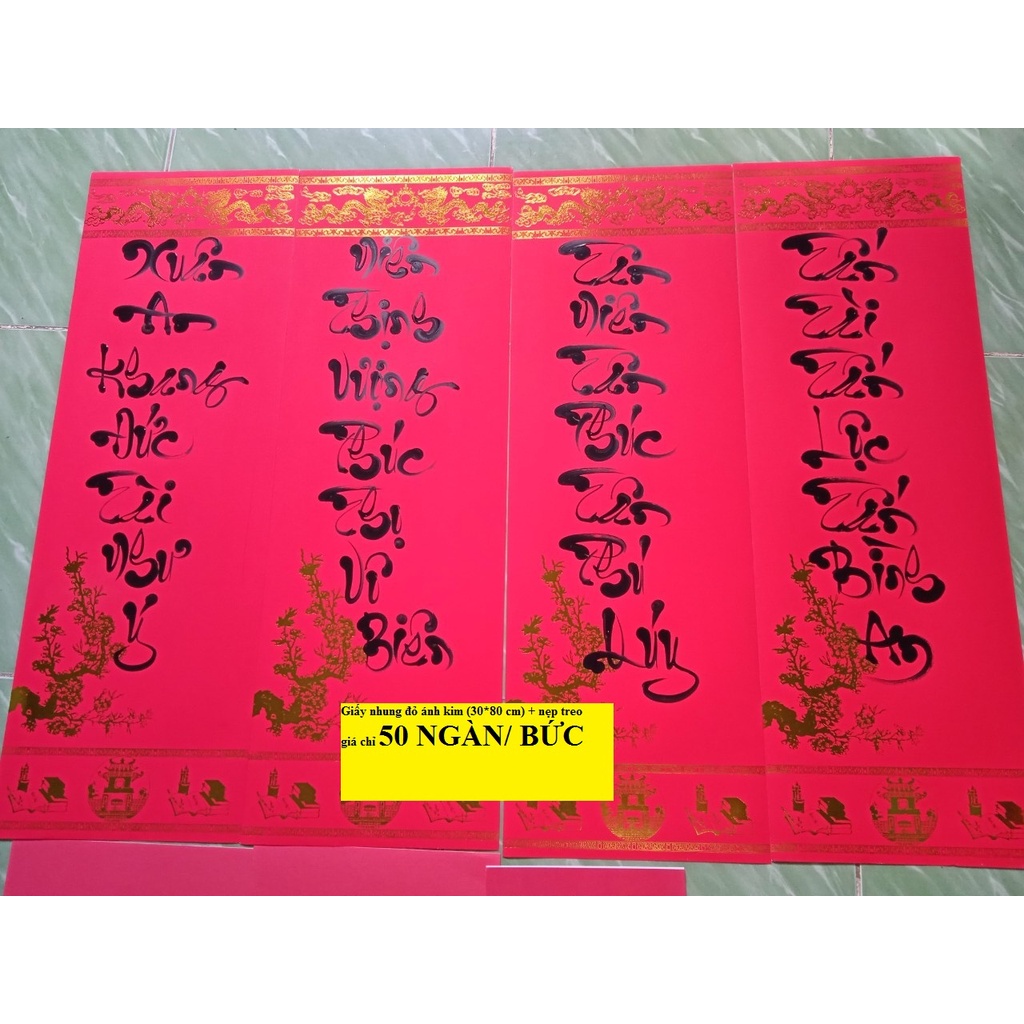 Xuân
An
Khang
Đức
Tài
Như
Ý
Niên
Thịnh
Vượng
Phúc
Thọ
Vô
Biên
Tân
Niên
Tân
Phúc
Tân
Phú
Quý
Tấn
Tài
Tấn
Lộc
Tấn
Bình
An
Giấy nhung đỏ ánh kim (30*80 cm) + nẹp treo
giá chỉ 50 NGÀN/ BỨC